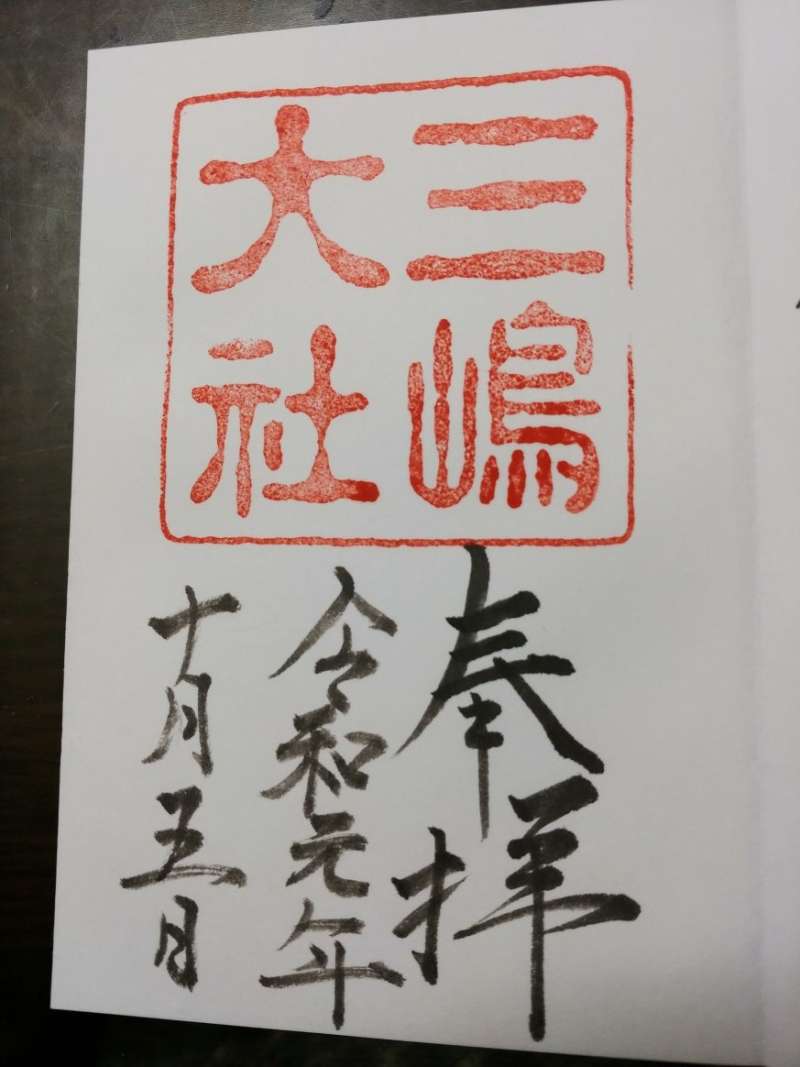 三嶋
大社
奉拝
令和元年
十月五日